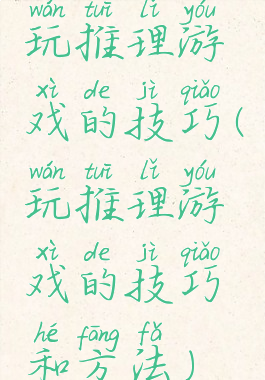 wán tuī lǐ yóu
玩推理游
xì de jì qiǎo
戏的技巧(
wán tuī lǐ yóu
玩推理游
xì de jì qiǎo
戏的技巧
hé fāng fǎ
和方法)